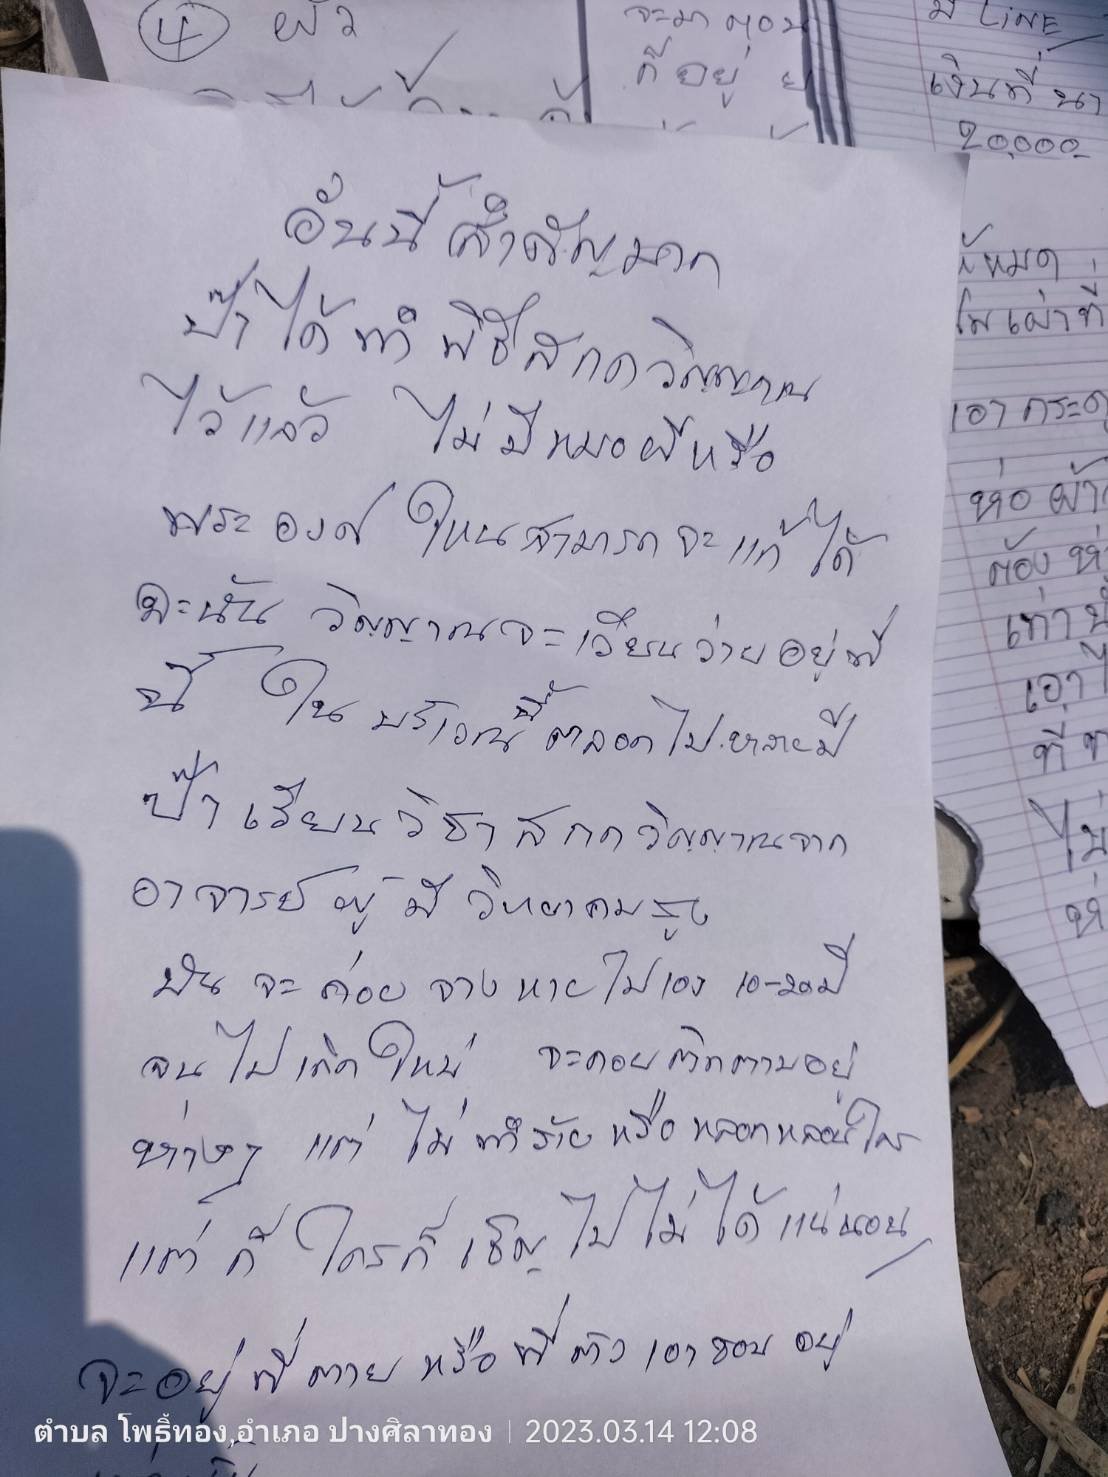 ④ ผัว
จะมาตอน
ก็อยู่ ย
มี LINE
เงินที่ นา
20,000
อันนี้สำคัญมาก
ป๊าได้ทำพิธีสกดวิญญาณ
ไว้แล้ว ไม่มีหมอผีหรือ
พระองค์ใหนสามารถจะแก้ได้
ฉะนั้น วิญญาณจะเวียนว่ายอยู่ที่
นี้ ในบริเวณนี้ตลอดไปหลายปี
ป๊าเรียนวิชาสกดวิญญาณจาก
อาจารย์ผู้มีวิทยาคมสูง
มันจะค่อยจางหายไปเอง 10-20ปี
จนไปเกิดใหม่ จะคอยติดตามอยู่
ห่างๆ แต่ไม่ทำร้ายหรือหลอกหลอนใคร
แต่ก็ใครก็เชิญไปไม่ได้แน่นอน
จะอยู่ที่ตายหรือที่ตัวเองชอบอยู่
ห้หมด
เผาที่
เอากระดู
ห่อผ้า
ต้องห่
เท่านั้
เอาไ
ที่
ไม่
ห่
ตำบล โพธิ์ทอง,อำเภอ ปางศิลาทอง | 2023.03.14 12:08